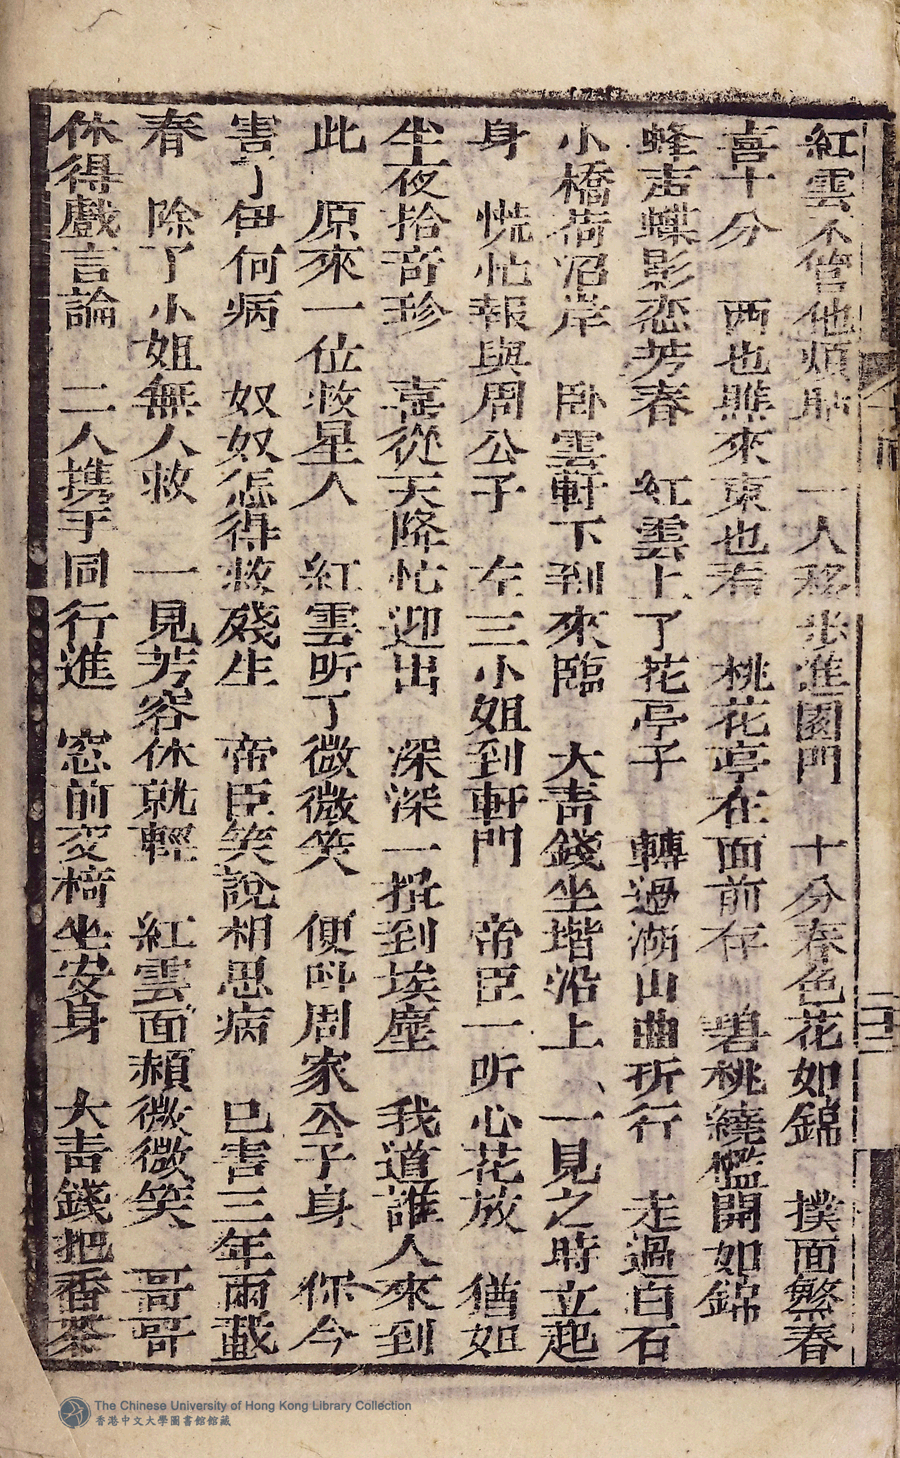 紅雲不管他煩 一人移步進園門 十分春色花如錦 撲面繁春
喜十分 西也瞧來東也看 桃花亭在面前存 碧桃繞檻開如錦
蜂声蝶影恋芳春 紅雲上了花亭子 轉過湖山曲折行 走過白石
小橋荷沼岸 卧雲軒下到來臨 大青錢坐堦沿上 一見之時立起
身 慌忙報與周公子 左三小姐到軒門 帝臣一听心花放 猶如
坐夜拾奇珍 喜從天降忙迎出 深深一揖到埃塵 我道誰人來到
此 原來一位救星人 紅雲听了微微笑 便呌周家公子身 你今
害了伊何病 奴奴怎得救殘生 帝臣笑說相思病 已害三年兩載
春 除了小姐無人救 一見芳容休就輕 紅雲面頳微微笑 哥哥
休得戲言論 二人携手同行進 窓前交椅坐安身 大青錢把香茶
二十三
The Chinese University of Hong Kong Library Collection
香港中文大學圖書館館藏